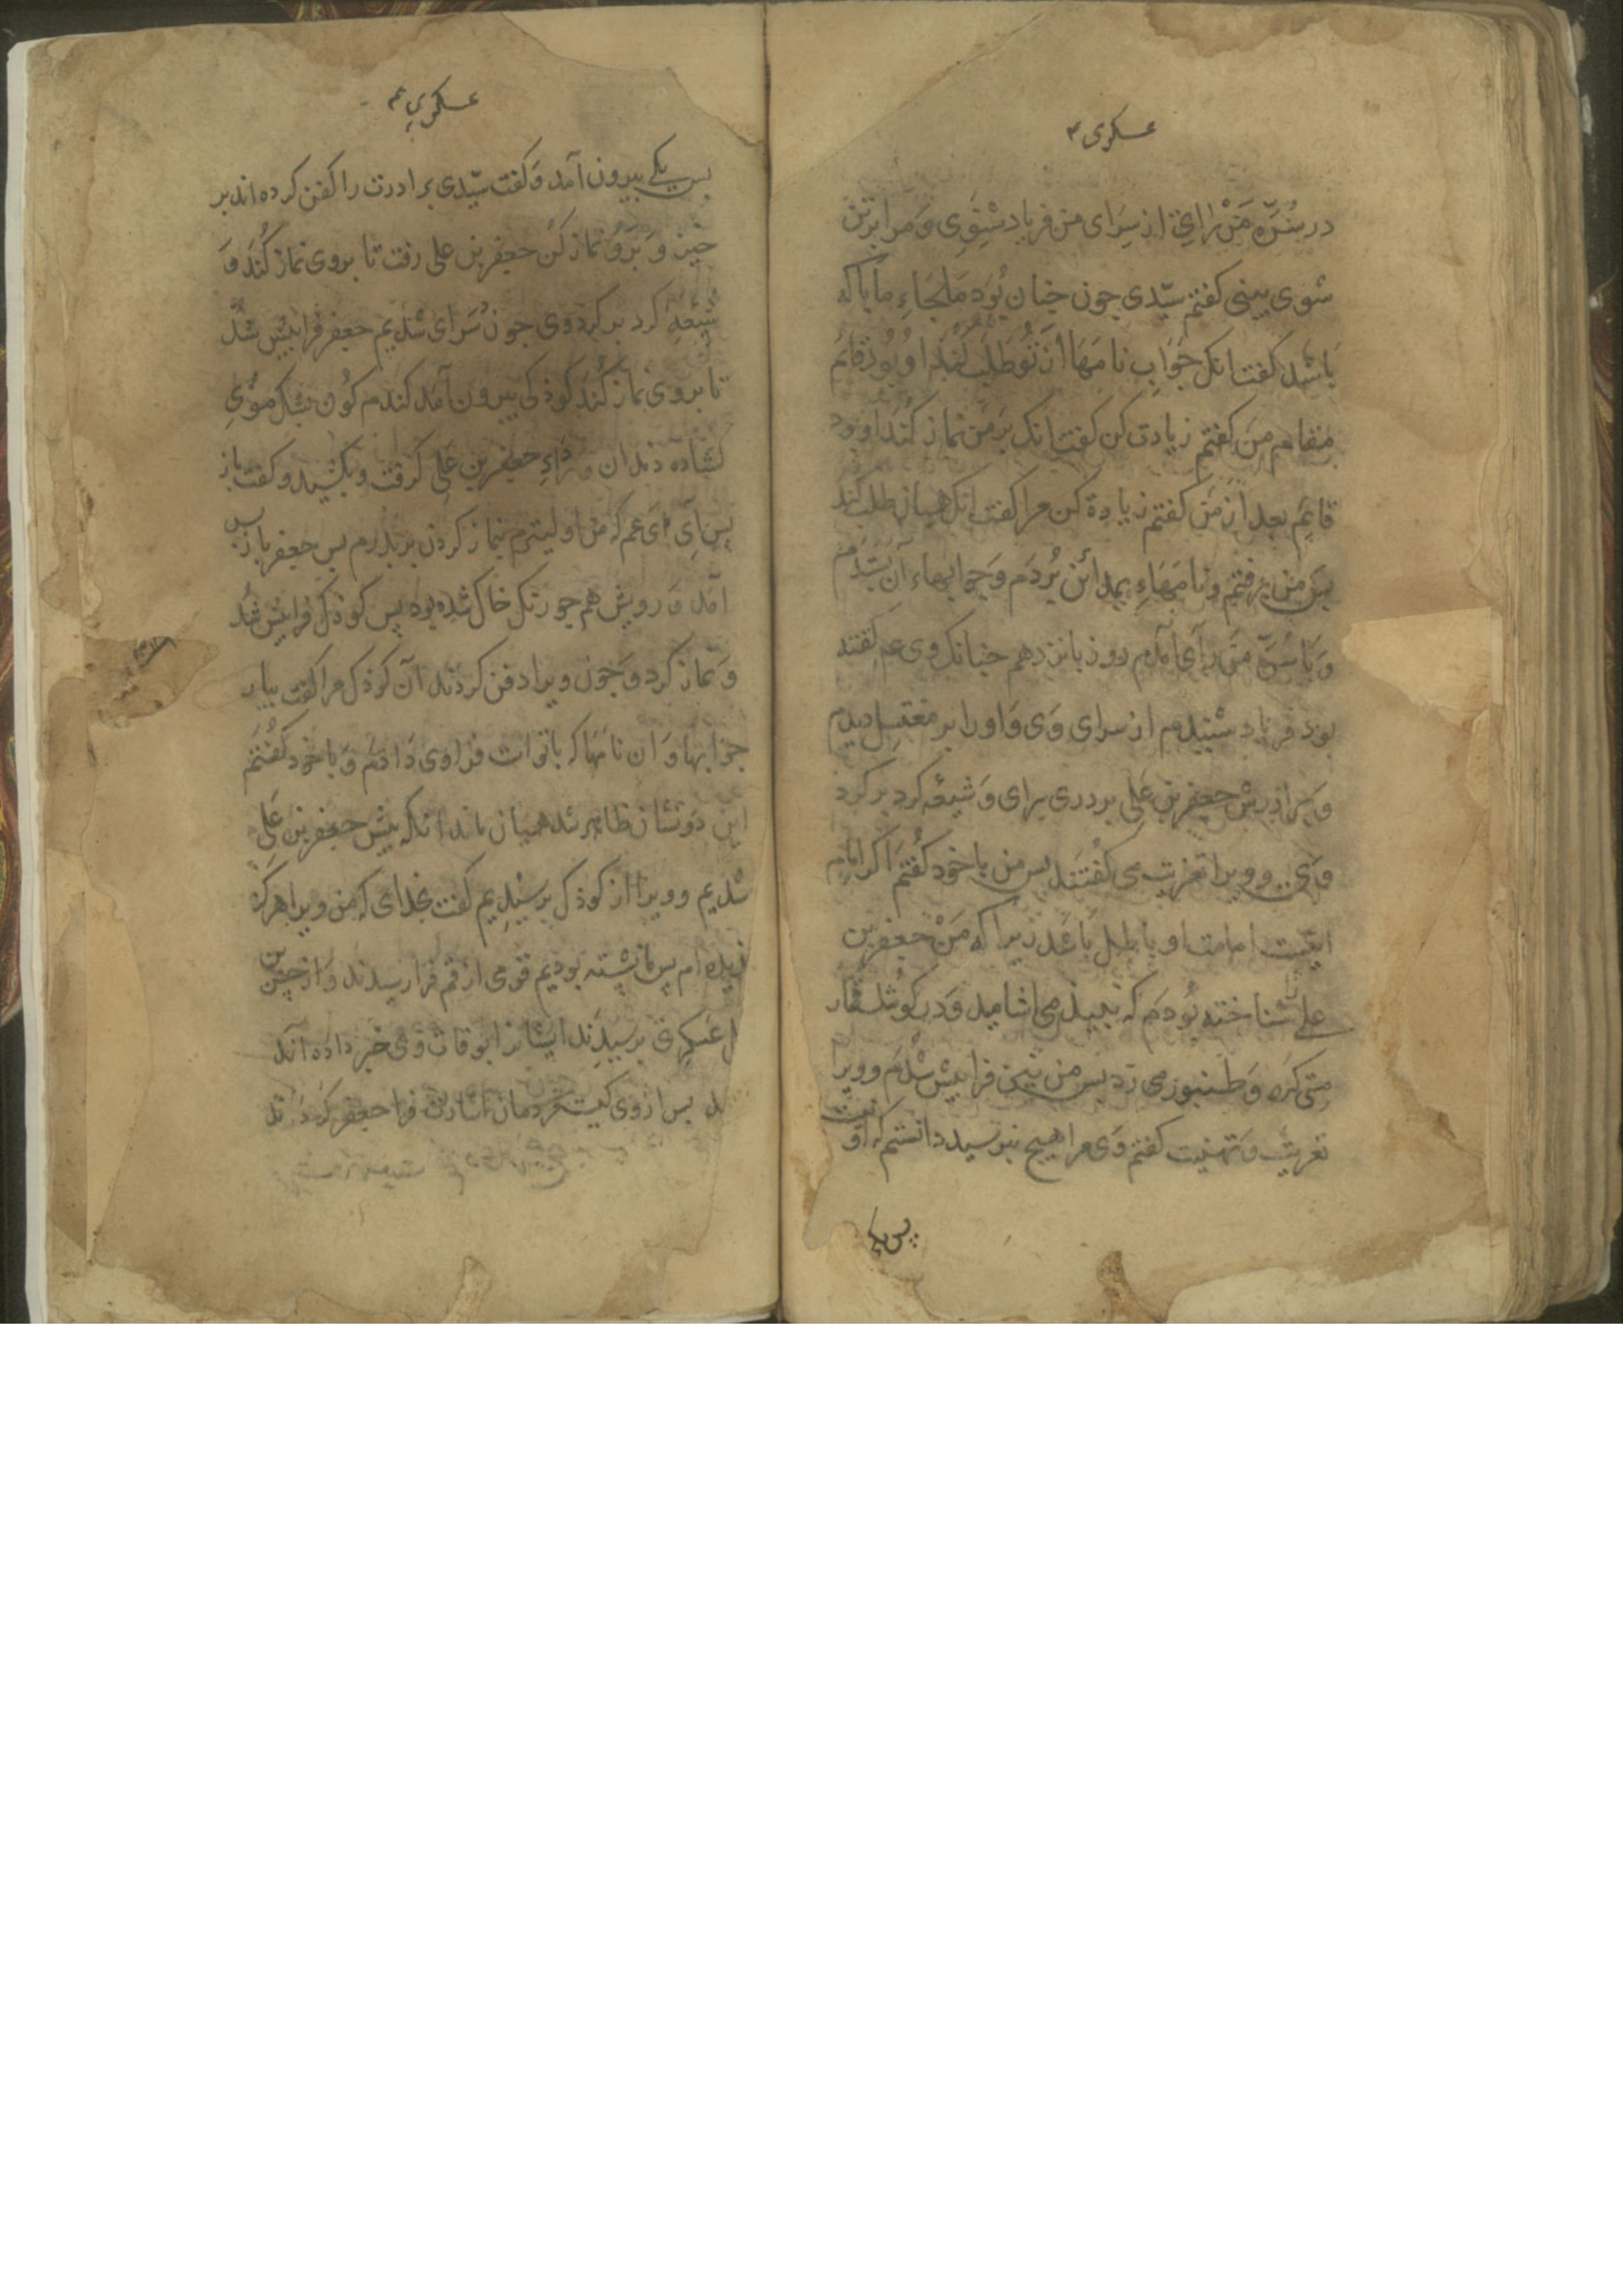 عسکری ؏
در سُرَّه مَنْ رَاٰی از سَرای من فریاد شِنَوِی وَ مرا بر تن
شوی بینی کفتم سیّدی جون جنان بُوَد مَلجَاءِ ما با که
بَاشد کفت انک جَوَابِ نامَهَا از تُو طلب کُنَد او بُوَد قائم
مقام من کفتم زیادت کن کفت انک بر من نماز کُنَد او بود
قائم بعد از من کفتم زیادة کن مرا کفت انک همیان طلب کند
بس من برفتم و نامهاءِ بمدائن بُردَم وَ جوابهاء آن بستدم
وَ با سُرَّ مَن رَآی آمدم روز بانزدهم جنانک وی ع کفته
بود فریاد شنیدم از سرای وَی وَ اورا بر مغتسل دیدم
و برادرش جعفر بن علی بر دری سرای وَ شیعه کرد بر کرد
وَی و ویرا تعزیت می کُفتَند بس من با خود کُفتَم اکر امام
اینست امامت او باطل باشد زیرا که مَنْ جعفر بن
علی شناخته بُودَم که نبیذ می اشامید وَ در کوشک قمار
می کرد وَ طنبور می زد بس من نیز فرا پیش شُدَم و ویرا
تعزیت و تهنیت کفتم وَی مرا هیج نبرسید دانستم که او نیست
پس یکی
عسکری ؏
بس یکی بیرون آمد وَ کفت سیّدی برادرت را کفن کرده اند بر
خیز وَ بَرَو نماز کن جعفر بن علی رفت تا بر وی نماز کُند وَ
شیعه کرد بر کرد وی جون دَر سَرای شدیم جعفر فرا پیش شد
تا بر وی نماز کُند کوذکی بیرون آمد کندم کُون بشکل موُی
کشاده دندان و رداءِ جعفر بن علی کرفت و بکشید و کفت باز
پس آی ای عم که من اولیترم بنماز کردن بر بدرم بس جعفر باز بس
آمد وَ رویش هم جو رنک خاک شده بود پس کوذک فرا پیش شُد
وَ نماز کرد وَ جون ویرا دفن کردند آن کوذک مرا کفت بیار
جوابها وَ آن نامَها که با تو است فرا وی دَادَم وَ با خود کُفتَم
این دو نشان ظاهر شد همیان ماند آنکه پیش جعفر بن عَلی
شدیم و ویرا از کوذک برسیدیم کفت بخدای که من ویرا هرکز
ندیده ام پس ما نشسته بودیم قومی از قم فرا رسیدند وَ از حسن بن
عسکری برسیدند ایشانرا بوفات وَی خبر داده آند
بس از وی کیست مردمان اشارت فرا جعفر کردند